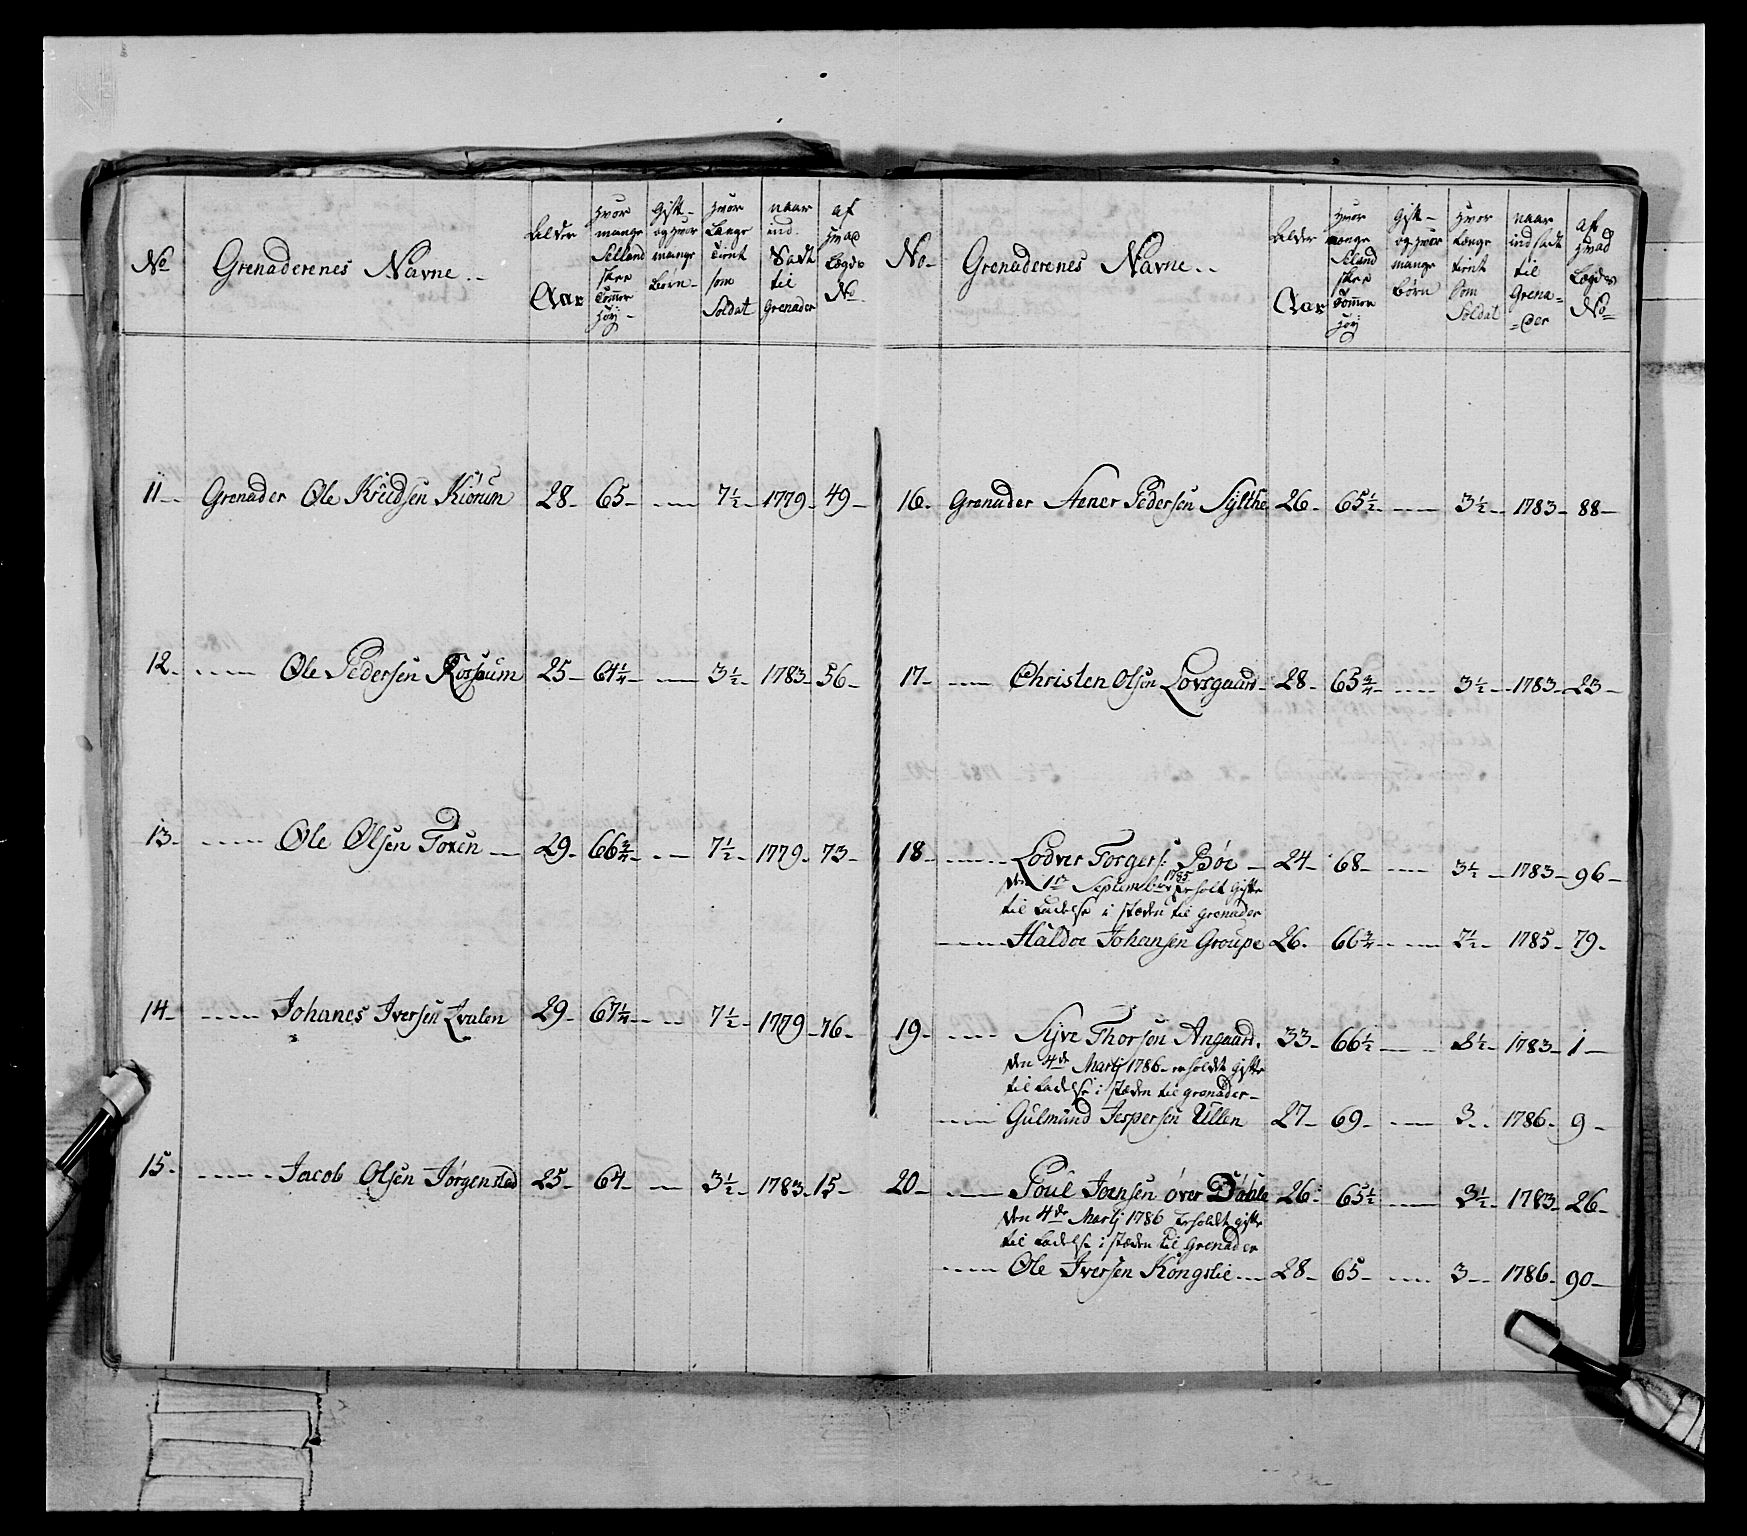 No
Grenaderenes Navne
Alder
Aar
Hvor
mange
Selland
skee
Tommer
Høy
Gift
og Hvor
mange
Børn
Hvor
Længe
tient
som
Soldat
naar
ind
Sadt
til
Grenader
af
Hvad
Lægds
No
11 Grenader Ole Knudsen Kiörum 28 65 7½ 1779 49
12 Ole Pedersen Rossum 25 64¼ 3½ 1783 56
13 Ole Olsen Foxen 29 66¾ 7½ 1779 73
14 Johanes Iversen Qvalen 29 67¼ 7½ 1779 76
15 Jacob Olsen Jørgensted 25 64 3½ 1783 15
No
Grenaderenes Navne
Alder
Aar
Hvor
mange
Seland
skee
Tommer
Høy
Gift
og Hvor
mange
Børn
Hvor
Længe
tient
som
Soldat
naar
indsadt
til
Grena-
-der
af
Hvad
Lægds
No
16 Grenader Aener Pedersen Sylthe 26 65½ 3½ 1783 88
17 Christen Olsen Lovsgaard 28 65¾ 3½ 1783 23
18 Lodver Torgers: Böe 24 68 3½ 1783 96
den 1te September 1785 Erholt gifte
til ladelse i stæden til Grenader
Haldoe Johansen Groupe 26 66¾ 2½ 1785 79
19 Syve Thorsen Angaard 33 66½ 8½ 1783 1
den 4de Martj 1786 erholdet gifte
til ladelse i stæden til grenader
Gulmund Jespersen Ullen 27 69 3 1786 9
20 Poul Joensen över Dahle 26 65½ 3½ 1783 26
den 4de Martj 1786 Erholdt gifte
til ladelse i stæden til Grenader
Ole Iversen Kongslie 28 65 3 1786 90